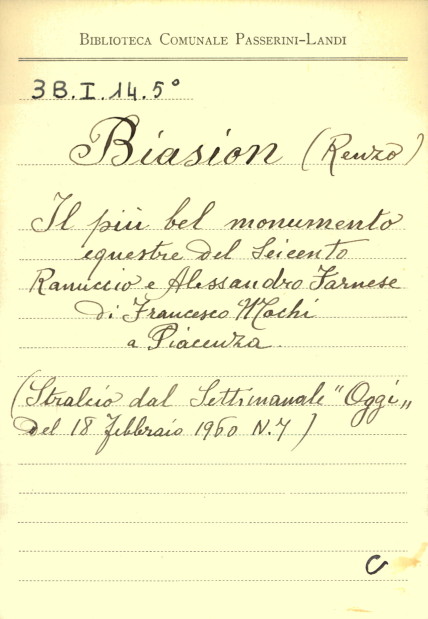 BIBLIOTECA COMUNALE PASSERINI-LANDI
3B.I.14.5°
Biasion (Renzo)
Il più bel monumento
equestre del Seicento
Ranuccio e Alessandro Farnese
di Francesco Mochi
a Piacenza.
(Stralcio dal Settimanale "Oggi„
del 18 Febbraio 1960 N.7)
C